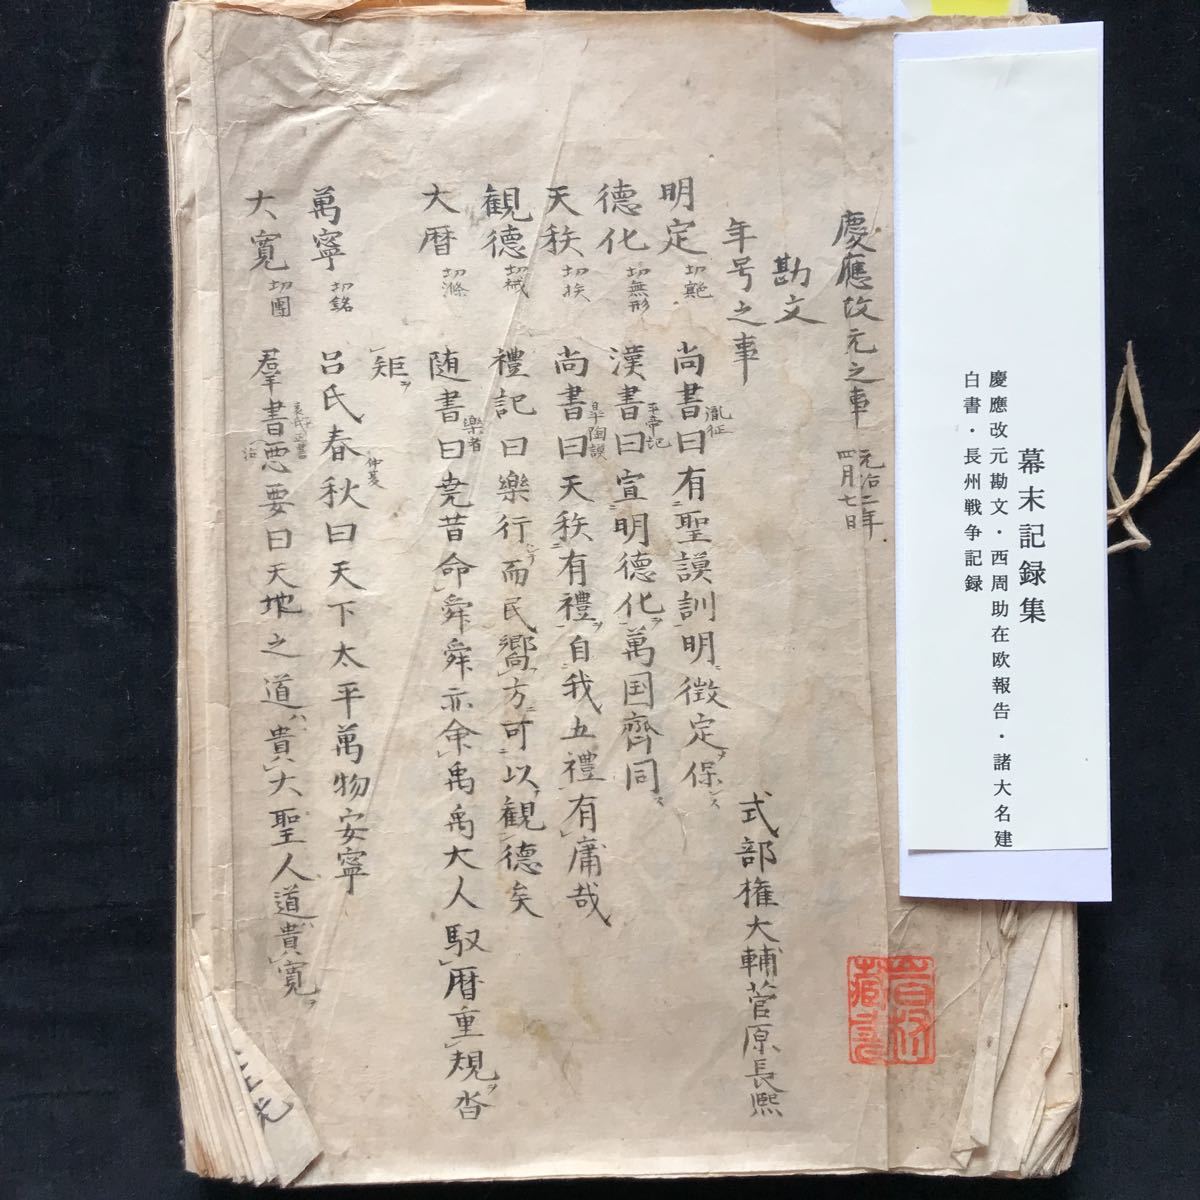 幕末記録集
慶應改元勘文・西周助在欧報告・諸大名建
白書・長州戦争記録
慶應改元之事 元治二年四月七日
勘文
年号之事
式部権大輔菅原長熙
明定 切 尚書曰有聖謨訓明徴定保 胤征
徳化 切無形 漢書曰宣明徳化萬国齊同 平帝記
天秩 切挨 尚書曰天秩有禮自我五禮有庸哉 皐陶謨
観徳 切械 禮記曰樂行而民嚮方可以観徳矣 樂者
大暦 切滌 随書曰尭昔命舜舜亦命禹禹大人馭暦重規沓
矩
萬寧 切銘 呂氏春秋曰天下太平萬物安寧 仲夏
大寛 切團 羣書要曰天地之道貴大聖人道貴寛